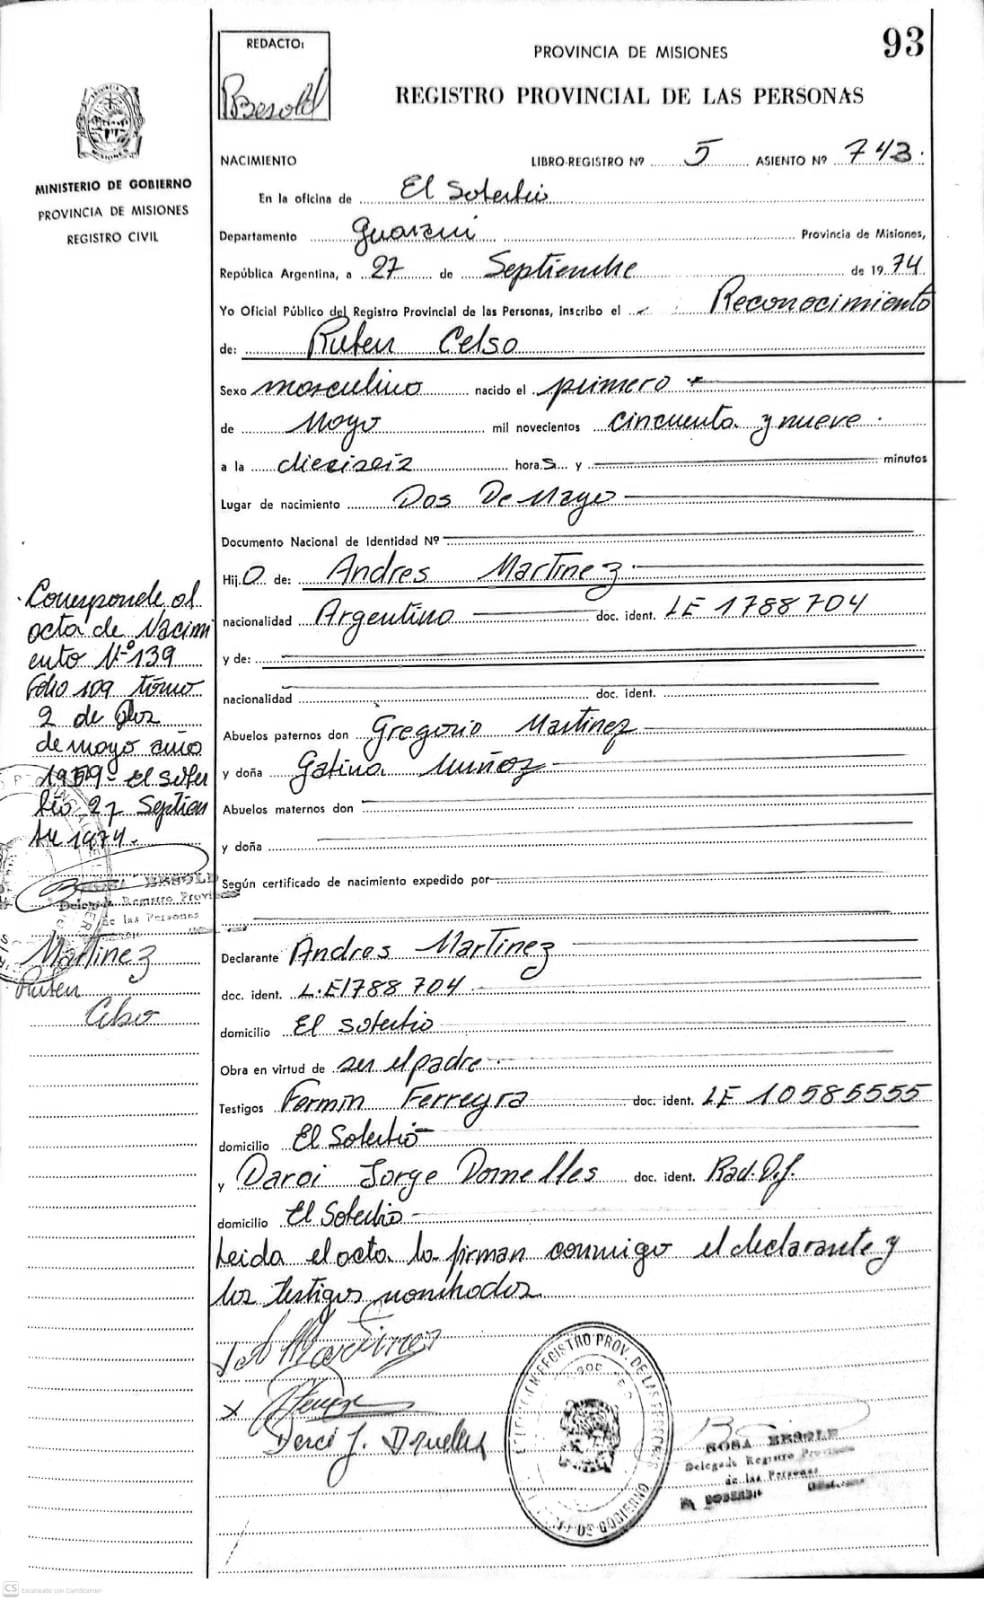 93
REDACTO:
Besold
PROVINCIA DE MISIONES
REGISTRO PROVINCIAL DE LAS PERSONAS
MINISTERIO DE GOBIERNO
PROVINCIA DE MISIONES
REGISTRO CIVIL
NACIMIENTO LIBRO-REGISTRO Nº 5 ASIENTO Nº 743.
En la oficina de El Soberbio
Departamento Guaraní Provincia de Misiones,
República Argentina, a 27 de Septiembre de 1974
Yo Oficial Público del Registro Provincial de las Personas, inscribo el Reconocimiento
de: Ruben Celso
Sexo masculino nacido el primero
de Mayo mil novecientos cincuenta y nueve.
a la dieciseis horas y minutos
Lugar de nacimiento Dos De Mayo
Documento Nacional de Identidad Nº
Hijo de: Andres Martinez
nacionalidad Argentino doc. ident. LE 1788704
y de:
nacionalidad doc. ident.
Abuelos paternos don Gregorio Martinez
y doña Muñoz
Abuelos maternos don
y doña
Según certificado de nacimiento expedido por
Declarante Andres Martinez
doc. ident. L.E 1788704
domicilio El Soberbio
Obra en virtud de ser el padre
Testigos Fermin Ferreyra doc. ident. LE 10585555
domicilio El Soberbio
y Darci Jorge Dornelles doc. ident.
domicilio El Soberbio
Leida el acta la firman conmigo el declarante y
los testigos nombrados
Corresponde al
acta de Nacimi
ento Nº 139
Folio 109 tomo
2 de Dos
de mayo año
1959- El Sober
bio 27 Septiem
bre 1974.
ROSA BESOLD
Delegada Registro Provincial
de las Personas
Martinez
Ruben
Celso
Martinez
Darci J. Dornelles
REGISTRO PROV. DE LAS PERSONAS
DE GOBIERNO
ROSA BESOLD
Delegada Registro Provincial
de las Personas
EL SOBERBIO
CS Escaneado con CamScanner